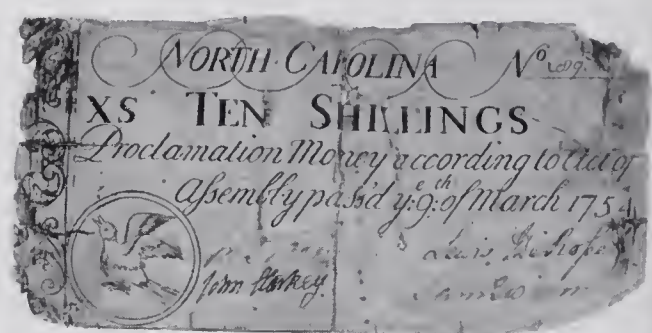 NORTH CAROLINA No
XS TEN SHILLINGS
Proclamation Money according to Act of
Assembly pass'd ye 9th of March 1754
John Starkey